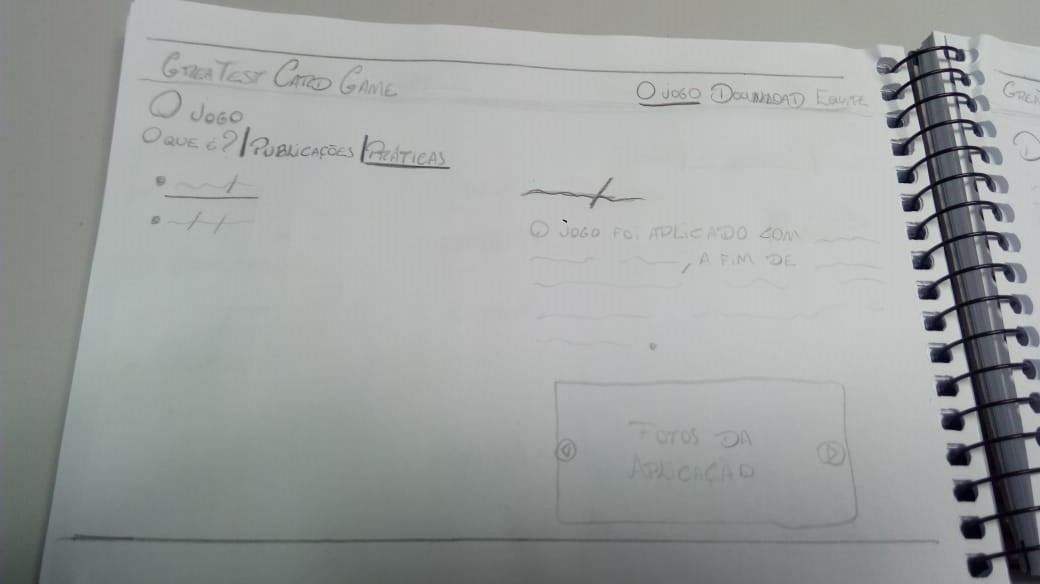 GREATEST CARD GAME
O JOGO DOWNLOAD EQUIPE
O JOGO
O QUE É? | PUBLICAÇÕES | PRÁTICAS
O JOGO FOI APLICADO COM
, A FIM DE
.
FOTOS DA
APLICAÇÃO
GREA
D